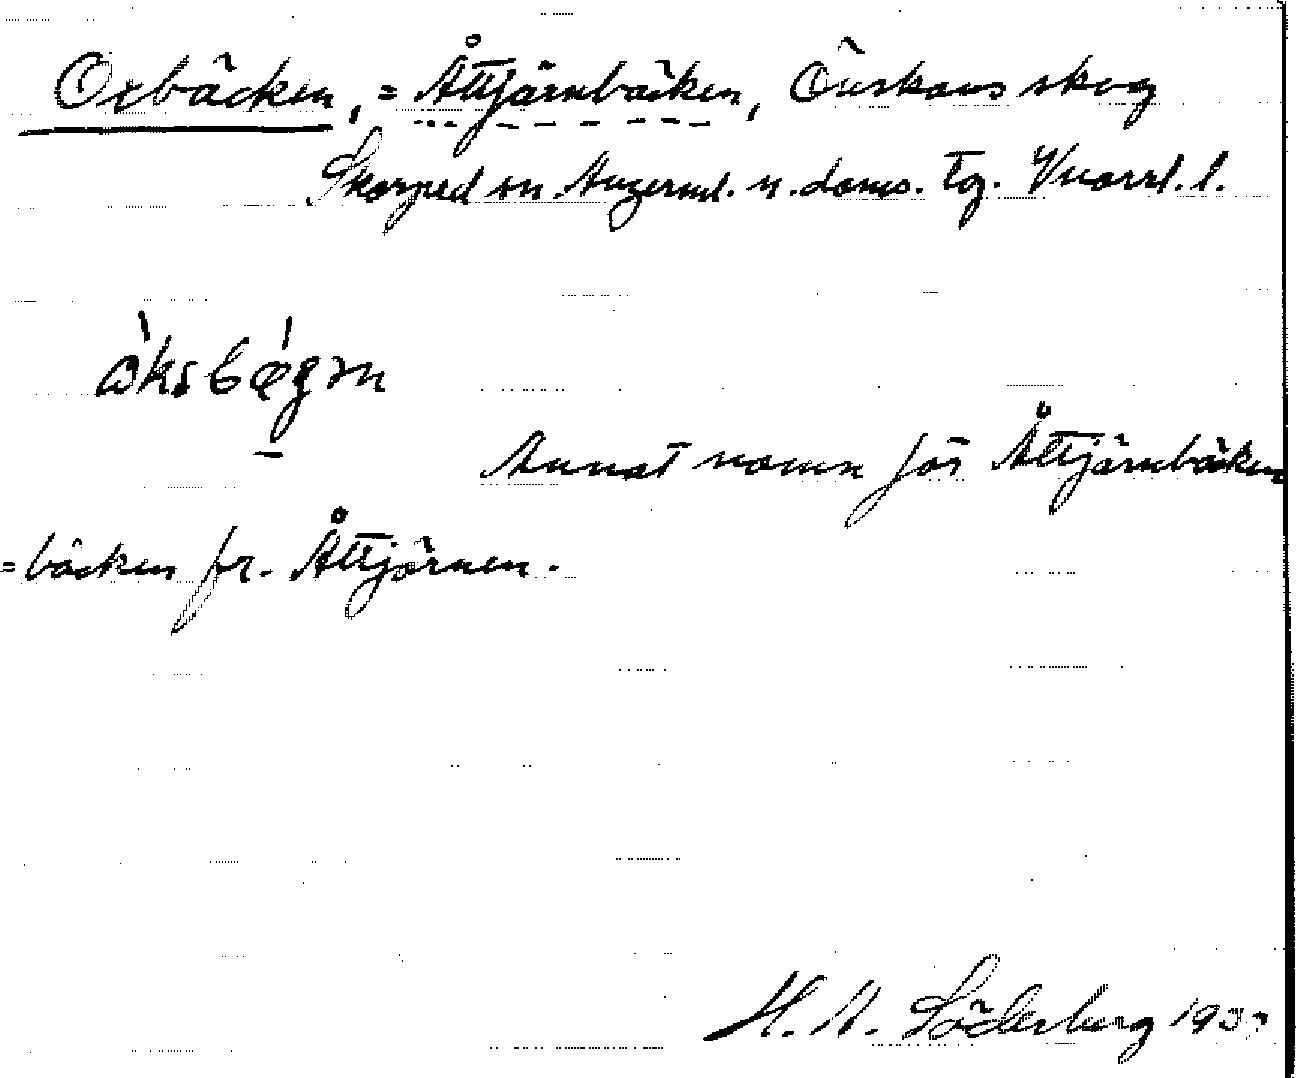 Oxbäcken, = Åttjärnbäcken, Önskans skog
Skorped sn Ångerml. n. doms. tg. Vnorrl. l.
Annat namn för Åttjärnbäcken
= bäcken fr. Åttjärnen.
H. A. Söderberg